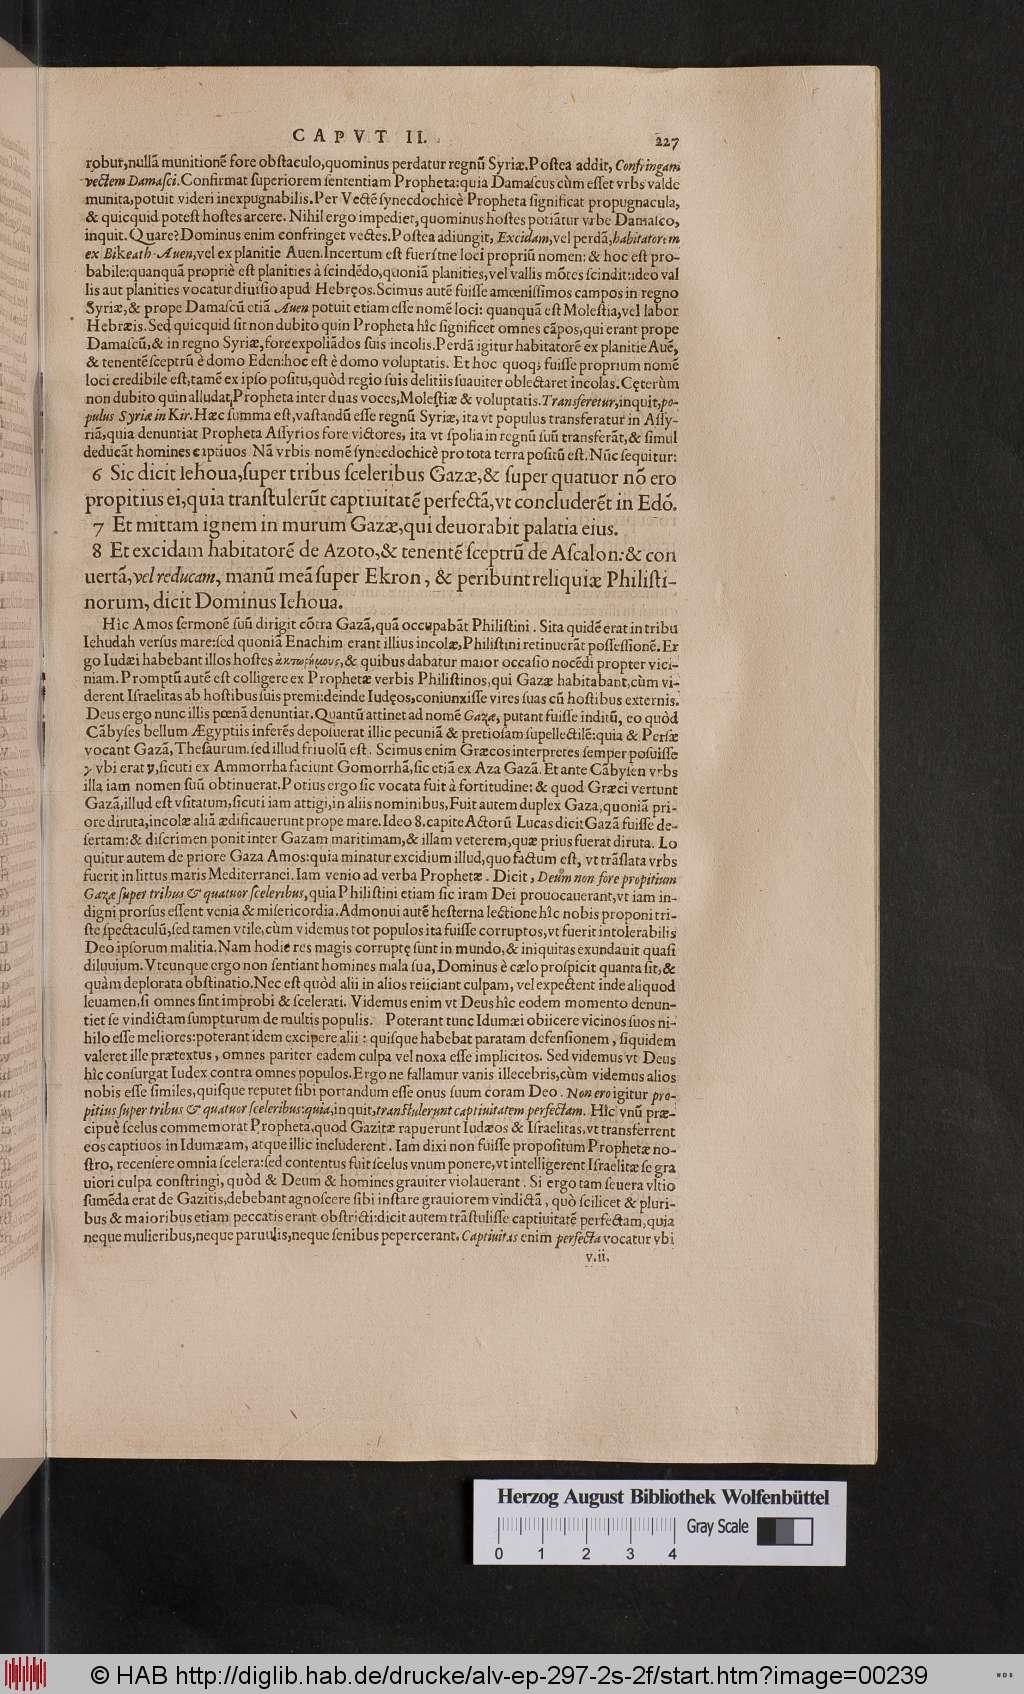 CAPVT II. 227
robur,nullā munitionē fore obſtaculo,quominus perdatur regnũ Syriæ.Poſtea addit, Confringam
vectem Damaſci.Confirmat ſuperiorem ſententiam Propheta:quia Damaſcus cùm eſſet vrbs valde
munita,potuit videri inexpugnabilis.Per Vectē ſynecdochicè Propheta ſignificat propugnacula,
& quicquid poteſt hoſtes arcere. Nihil ergo impediet,quominus hoſtes potiātur vrbe Damaſco,
inquit. Quare?Dominus enim confringet vectes.Poſtea adiungit, Excidam,vel perdā,habitatorem
ex Bikeath-Auen,vel ex planitie Auen.Incertum eſt fuerítne loci propriũ nomen: & hoc eſt pro-
babile:quanquā propriè eſt planities à ſcindēdo,quoniā planities,vel vallis mōtes ſcindit:ideo val
lis aut planities vocatur diuiſio apud Hebręos.Scimus autē fuiſſe amœniſſimos campos in regno
Syriæ,& prope Damaſcũ etiā Auen potuit etiam eſſe nomē loci: quanquā eſt Moleſtia,vel labor
Hebræis. Sed quicquid ſit non dubito quin Propheta hîc ſignificet omnes cāpos,qui erant prope
Damaſcũ,& in regno Syriæ,fore expoliādos ſuis incolis.Perdā igitur habitatorē ex planitie Auē,
& tenentē ſceptrũ è domo Eden:hoc eſt è domo voluptatis. Et hoc quoq; fuiſſe proprium nomē
loci credibile eſt,tamē ex ipſo poſitu,quòd regio ſuis delitiis ſuauiter oblectaret incolas.Cęterùm
non dubito quin alludat Propheta inter duas voces,Moleſtiæ & voluptatis.Transferetur,inquit,po-
pulus Syriæ in Kir.Hæc ſumma eſt,vaſtandũ eſſe regnũ Syriæ, ita vt populus transferatur in Aſſy-
riā,quia denuntiat Propheta Aſſyrios fore victores, ita vt ſpolia in regnũ ſuũ transferāt,& ſimul
deducāt homines captiuos Nā vrbis nomē ſynecdochicè pro tota terra poſitũ eſt.Nūc ſequitur:
6 Sic dicit Iehoua,ſuper tribus ſceleribus Gazæ,& ſuper quatuor nō ero
propitius ei,quia tranſtulerūt captiuitatē perfectā,vt concluderēt in Edō.
7 Et mittam ignem in murum Gazæ,qui deuorabit palatia eius.
8 Et excidam habitatorē de Azoto,& tenentē ſceptrũ de Aſcalon:& con
uertā,vel reducam, manũ meā ſuper Ekron, & peribunt reliquiæ Philiſti-
norum, dicit Dominus Iehoua.
Hîc Amos ſermonē ſuũ dirigit cōtra Gazā,quā occupabāt Philiſtini. Sita quidē erat in tribu
Iehudah verſus mare:ſed quoniā Enachim erant illius incolæ,Philiſtini retinuerāt poſſeſſionē.Er
go Iudæi habebant illos hoſtes,& quibus dabatur maior occaſio nocēdi propter vici-
niam.Promptũ autē eſt colligere ex Prophetæ verbis Philiſtinos,qui Gazæ habitabant,cùm vi-
derent Iſraelitas ab hoſtibus ſuis premi:deinde Iudęos,coniunxiſſe vires ſuas cũ hoſtibus externis.
Deus ergo nunc illis pœnā denuntiat.Quantũ attinet ad nomē Gazæ, putant fuiſſe inditũ, eo quòd
Cābyſes bellum Ægyptiis inferēs depoſuerat illic pecuniā & pretioſam ſupellectilē:quia & Perſæ
vocant Gazā, Theſaurum.ſed illud friuolũ eſt. Scimus enim Græcos interpretes ſemper poſuiſſe
γ vbi erat ע,ſicuti ex Ammorrha faciunt Gomorrhā,ſic etiā ex Aza Gazā.Et ante Cābyſen vrbs
illa iam nomen ſuũ obtinuerat.Potius ergo ſic vocata fuit à fortitudine: & quod Græci vertunt
Gazā,illud eſt vſitatum,ſicuti iam attigi,in aliis nominibus,Fuit autem duplex Gaza,quoniā pri-
ore diruta,incolæ aliā ædificauerunt prope mare.Ideo 8.capite Actorũ Lucas dicit Gazā fuiſſe de-
ſertam:& diſcrimen ponit inter Gazam maritimam,& illam veterem,quæ prius fuerat diruta. Lo
quitur autem de priore Gaza Amos:quia minatur excidium illud,quo factum eſt, vt trāſlata vrbs
fuerit in littus maris Mediterranei.Iam venio ad verba Prophetæ. Dicit, Deũm non fore propitium
Gazæ ſuper tribus & quatuor ſceleribus,quia Philiſtini etiam ſic iram Dei prouocauerant,vt iam in-
digni prorſus eſſent venia & miſericordia.Admonui autē heſterna lectione hîc nobis proponi tri-
ſte ſpectaculũ,ſed tamen vtile,cùm videmus tot populos ita fuiſſe corruptos,vt fuerit intolerabilis
Deo ipſorum malitia.Nam hodie res magis corruptę ſunt in mundo,& iniquitas exundauit quaſi
diluuium.Vtcunque ergo non ſentiant homines mala ſua,Dominus è cælo proſpicit quanta ſit,&
quàm deplorata obſtinatio.Nec eſt quòd alii in alios reiiciant culpam, vel expectent inde aliquod
leuamen,ſi omnes ſint improbi & ſcelerati. Videmus enim vt Deus hîc eodem momento denun-
tiet ſe vindictam ſumpturum de multis populis. Poterant tunc Idumæi obiicere vicinos ſuos ni-
hilo eſſe meliores:poterant idem excipere alii: quiſque habebat paratam defenſionem, ſiquidem
valeret ille prætextus, omnes pariter eadem culpa vel noxa eſſe implicitos. Sed videmus vt Deus
hîc conſurgat Iudex contra omnes populos.Ergo ne fallamur vanis illecebris,cùm videmus alios
nobis eſſe ſimiles,quiſque reputet ſibi portandum eſſe onus ſuum coram Deo. Non ero igitur pro-
pitius ſuper tribus & quatuor ſceleribus:quia,inquit,tranſtulerunt captiuitatem perfectam. Hîc vnũ præ-
cipuè ſcelus commemorat Propheta,quod Gazitæ rapuerunt Iudæos & Iſraelitas,vt transferrent
eos captiuos in Idumæam, atque illic includerent. Iam dixi non fuiſſe propoſitum Prophetæ no-
ſtro, recenſere omnia ſcelera:ſed contentus fuit ſcelus vnum ponere,vt intelligerent Iſraelitæ ſe gra
uiori culpa conſtringi, quòd & Deum & homines grauiter violauerant. Si ergo tam ſeuera vltio
ſumēda erat de Gazitis,debebant agnoſcere ſibi inſtare grauiorem vindictā, quò ſcilicet & pluri-
bus & maioribus etiam peccatis erant obſtricti:dicit autem trāſtuliſſe captiuitatē perfectam,quia
neque mulieribus,neque paruulis,neque ſenibus pepercerant.Captiuitas enim perfecta vocatur vbi
v.ii.
Herzog August Bibliothek Wolfenbüttel
Gray Scale
0 1 2 3 4
© HAB http://diglib.hab.de/drucke/alv-ep-297-2s-2f/start.htm?image=00239
WDB